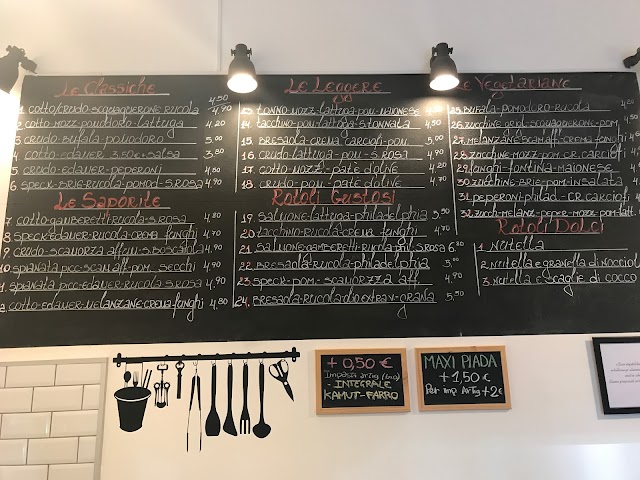 Le Classiche
4,50
1 COTTO/CRUDO-SQUAQUERONE-RUCOLA 4,90
2 COTTO-MOZZ-POMODORO-LATTUGA 4,20
3 CRUDO-BUFALA POMODORO 5,00
4 COTTO-EDAMER-SALSA 3,80
5 CRUDO-EDAMER-PEPERONI 4,80
6 SPECK-BRIE-RUCOLA-POMOD-S.ROSA 4,90
Le Saporite
7 COTTO-GAMBERETTI-RUCOLA-S.ROSA 4,80
8 SPECK-EDAMER-RUCOLA CREMA FUNGHI 4,70
9 CRUDO-SCAMORZA AFFUM-S.BOSCAIOLA 4,90
10 SPIANATA PICC-SCAM.AFF-POM. SECCHI 4,90
11 SPIANATA PICC-EDAMER-RUCOLA-S.ROSA 4,70
COTTO-EDAMER-MELANZANE-CREMA FUNGHI 4,80
Le Leggere
13 TONNO-MOZZ-LATTUGA-POM-MAIONESE
14 TACCHINO-POM-LATTUGA-S.TONNATA
15 BRESAOLA-CREMA CARCIOFI-POM
16 CRUDO-LATTUGA-POM-S.ROSA
17 COTTO-MOZZ-PATÈ D'OLIVE
18 CRUDO-POM-PATÈ D'OLIVE
Rotoli Gustosi
19. SALMONE-LATTUGA-PHILADELPHIA 5,50
20 TACCHINO-RUCOLA-CREMA FUNGHI 4,70
21. SALMONE-GAMBERETTI-RUCOLA-PHIL-S.ROSA 6,30
22 BRESAOLA-RUCOLA-PHILADELPHIA 5,50
23. SPECK-POM-SCAMORZA AFF. 4,90
24. BRESAOLA-RUCOLA-OLIO EXTRAV-GRANA 5,50
Le Vegetariane
25 BUFALA-POMODORO-RUCOLA
26 ZUCCHINE GRIGL-SQUAQUERONE-POM
27 MELANZANE-SCAM.AFF-CREMA FUNGHI
28 ZUCCHINE-MOZZ-POM-CR. CARCIOFI
29 FUNGHI-FONTINA-MAIONESE
30 ZUCCHINE-BRIE-POM-INSALATA
31 PEPERONI-PHILAD-CR. CARCIOFI
32 ZUCCH-MELANZ-PEPER-MOZZ-POM-LATT
Rotoli Dolci
1. NUTELLA
2. NUTELLA E GRANELLA DI NOCCIOL
3 NUTELLA E SCAGLIE DI COCCO
+ 0,50 €
IMPASTI ARTIG (BIO)
- INTEGRALE
KAMUT-FARRO
MAXI PIADA
+ 1,50 €
PER IMP ARTIG +2 €